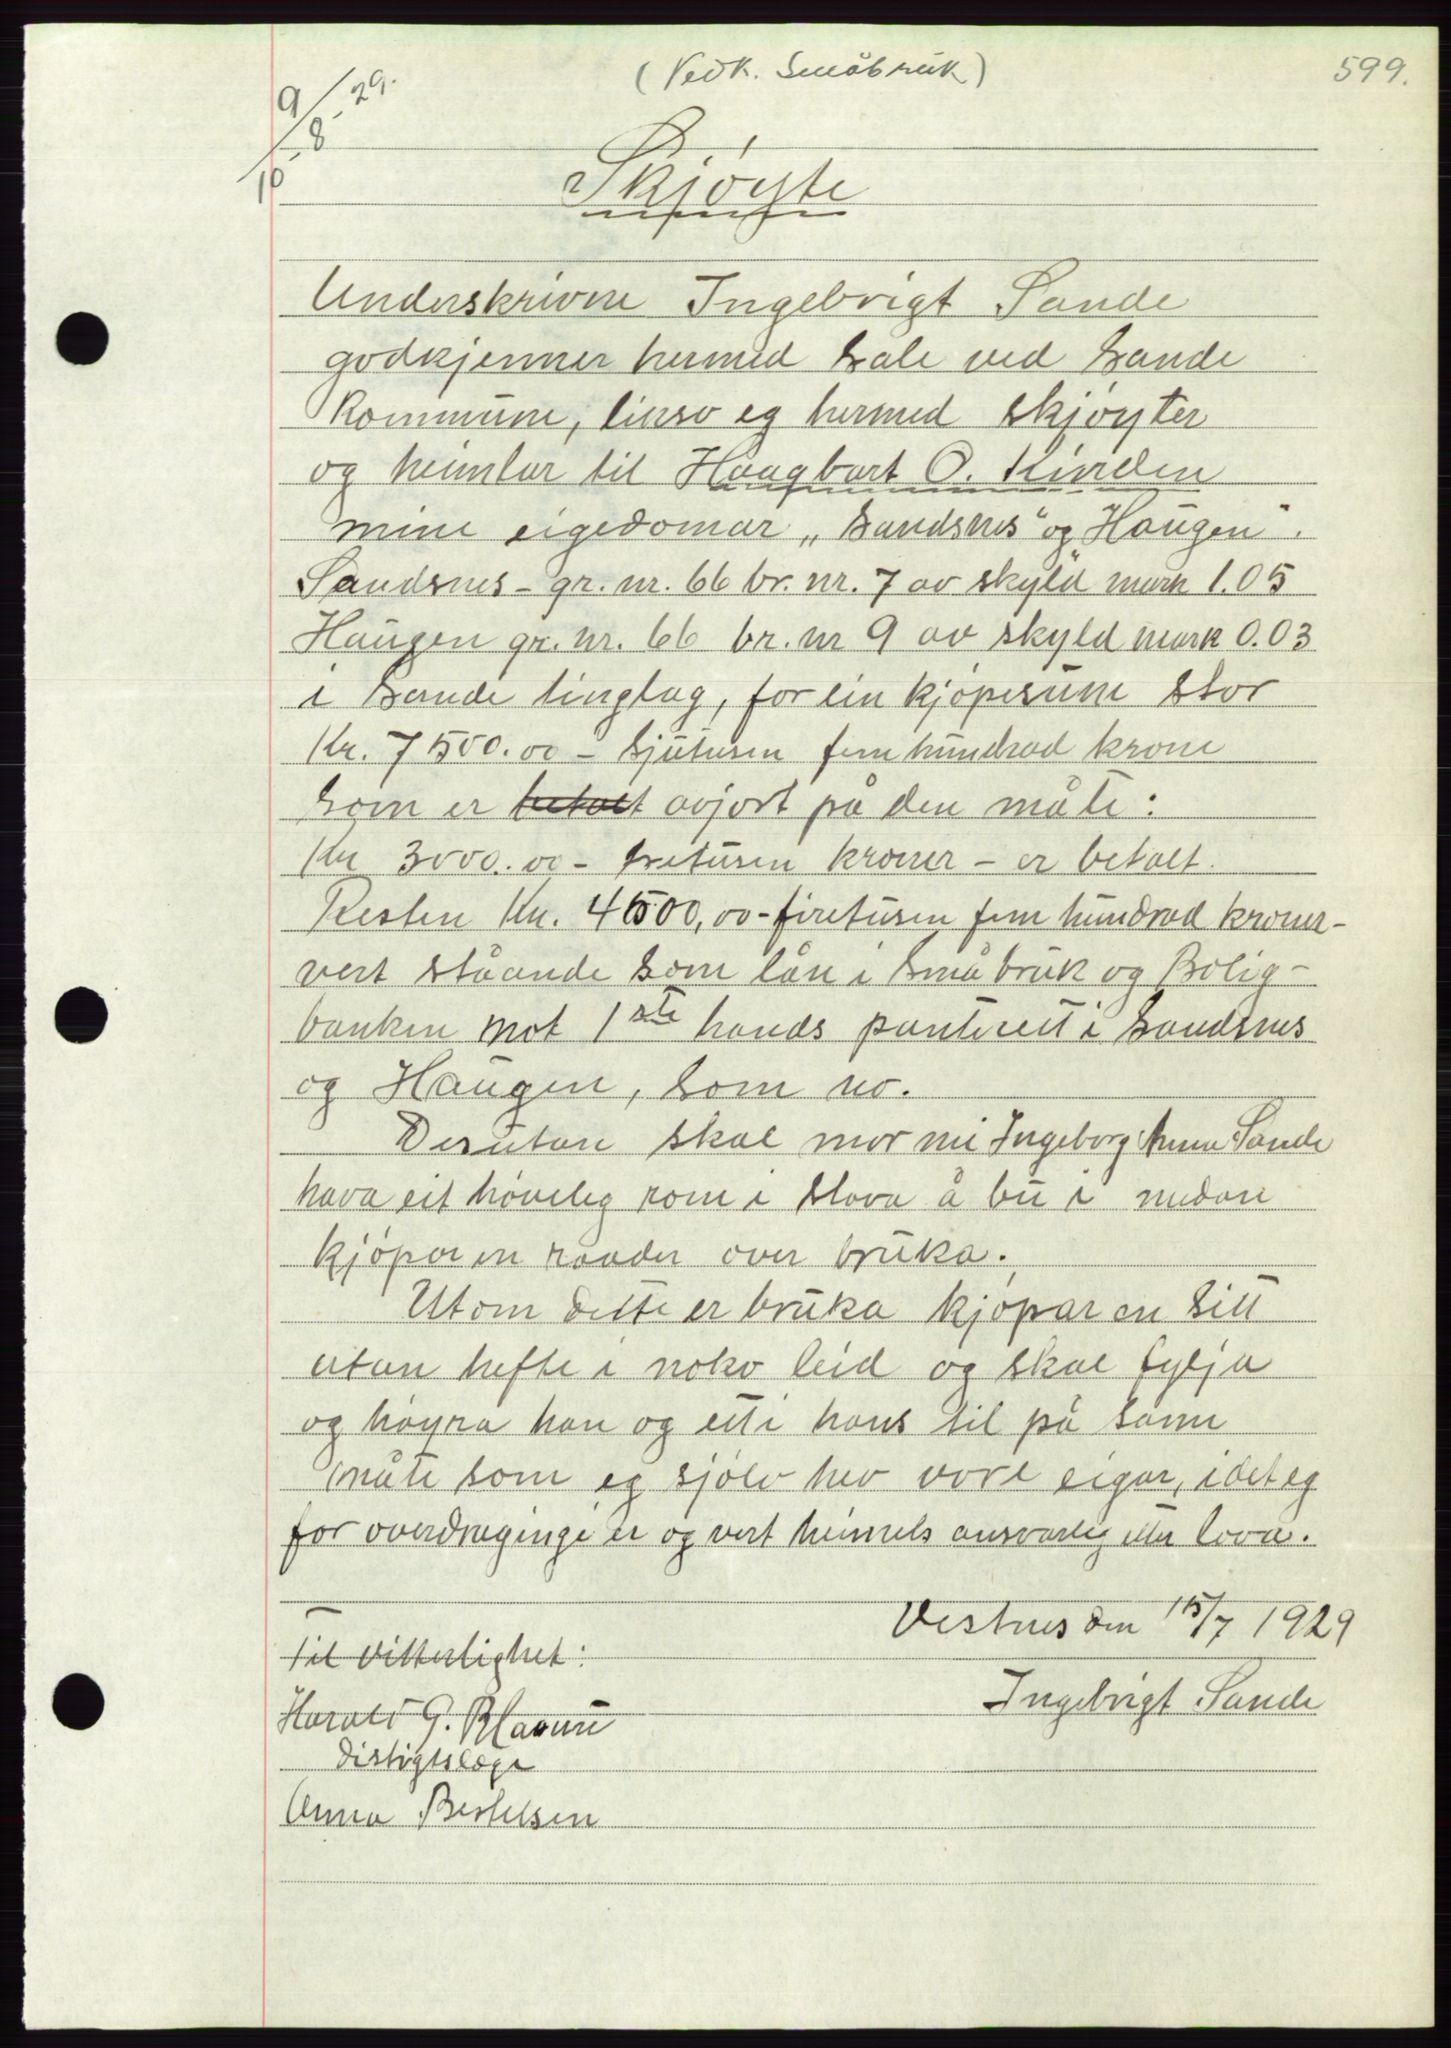 (Vedk. Småbruk)
599.
9/10-8-29.
Skjøyte
Underskrivne Ingebrigt Sande
godkjenner hermed sale ved Sande
Kommune, likso eg hermed skjøyter
og heimlar til Haagbart O. Kinden
mine eigedomar „Sandsnes" og Haugen".
Sandsnes - gr. nr. 66 br. nr. 7 av skyld mark 1.05
Haugen gr. nr. 66 br. nr 9 av skyld mark 0.03
i Sande tinglag, for ein kjøpesum stor
Kr. 7500.00 - sjutusen fem hundrad krone
som er betalt avjort på den måte:
Kr 3000.00 - tretusen kroner - er betalt.
Resten Kr. 4500,00 - firetusen fem hundrad kroner -
vert ståande som lån i Småbruk og Bolig-
banken mot 1ste hands panterett i Sandsnes
og Haugen, som no.
Desutan skal mor mi Ingeborg Anna Sande
hava eit høveleg rom i stova å bu i medan
kjøparen raader over bruka.
Utom dette er bruka kjøparen sitt
utan hefte i noko leid og skal fylja
og høyra han og etti hans til på same
måte som eg sjølv hev vore eigar, idet eg
for overdraginge er og vert heimels ansvarleg etter lova.
Vestnes den 15/7 1929
Til vitterlighet:
Ingebrigt Sande
Harald G.
Distrigtslæge
Anna Bertelsen